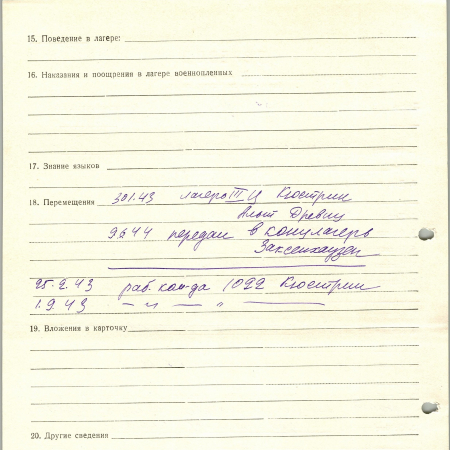 15. Поведение в лагере:
16. Наказания и поощрения в лагере военнопленных
17. Знание языков
18. Перемещения 30 1.43 лагерь III Ц Кюстрин
Альт Древиц
9.6 44 передан в концлагерь
Заксенхаузен
25.2.43 раб. ком-да 1022 Кюстрин
1.9.43 — " — "
19. Вложения в карточку
20. Другие сведения